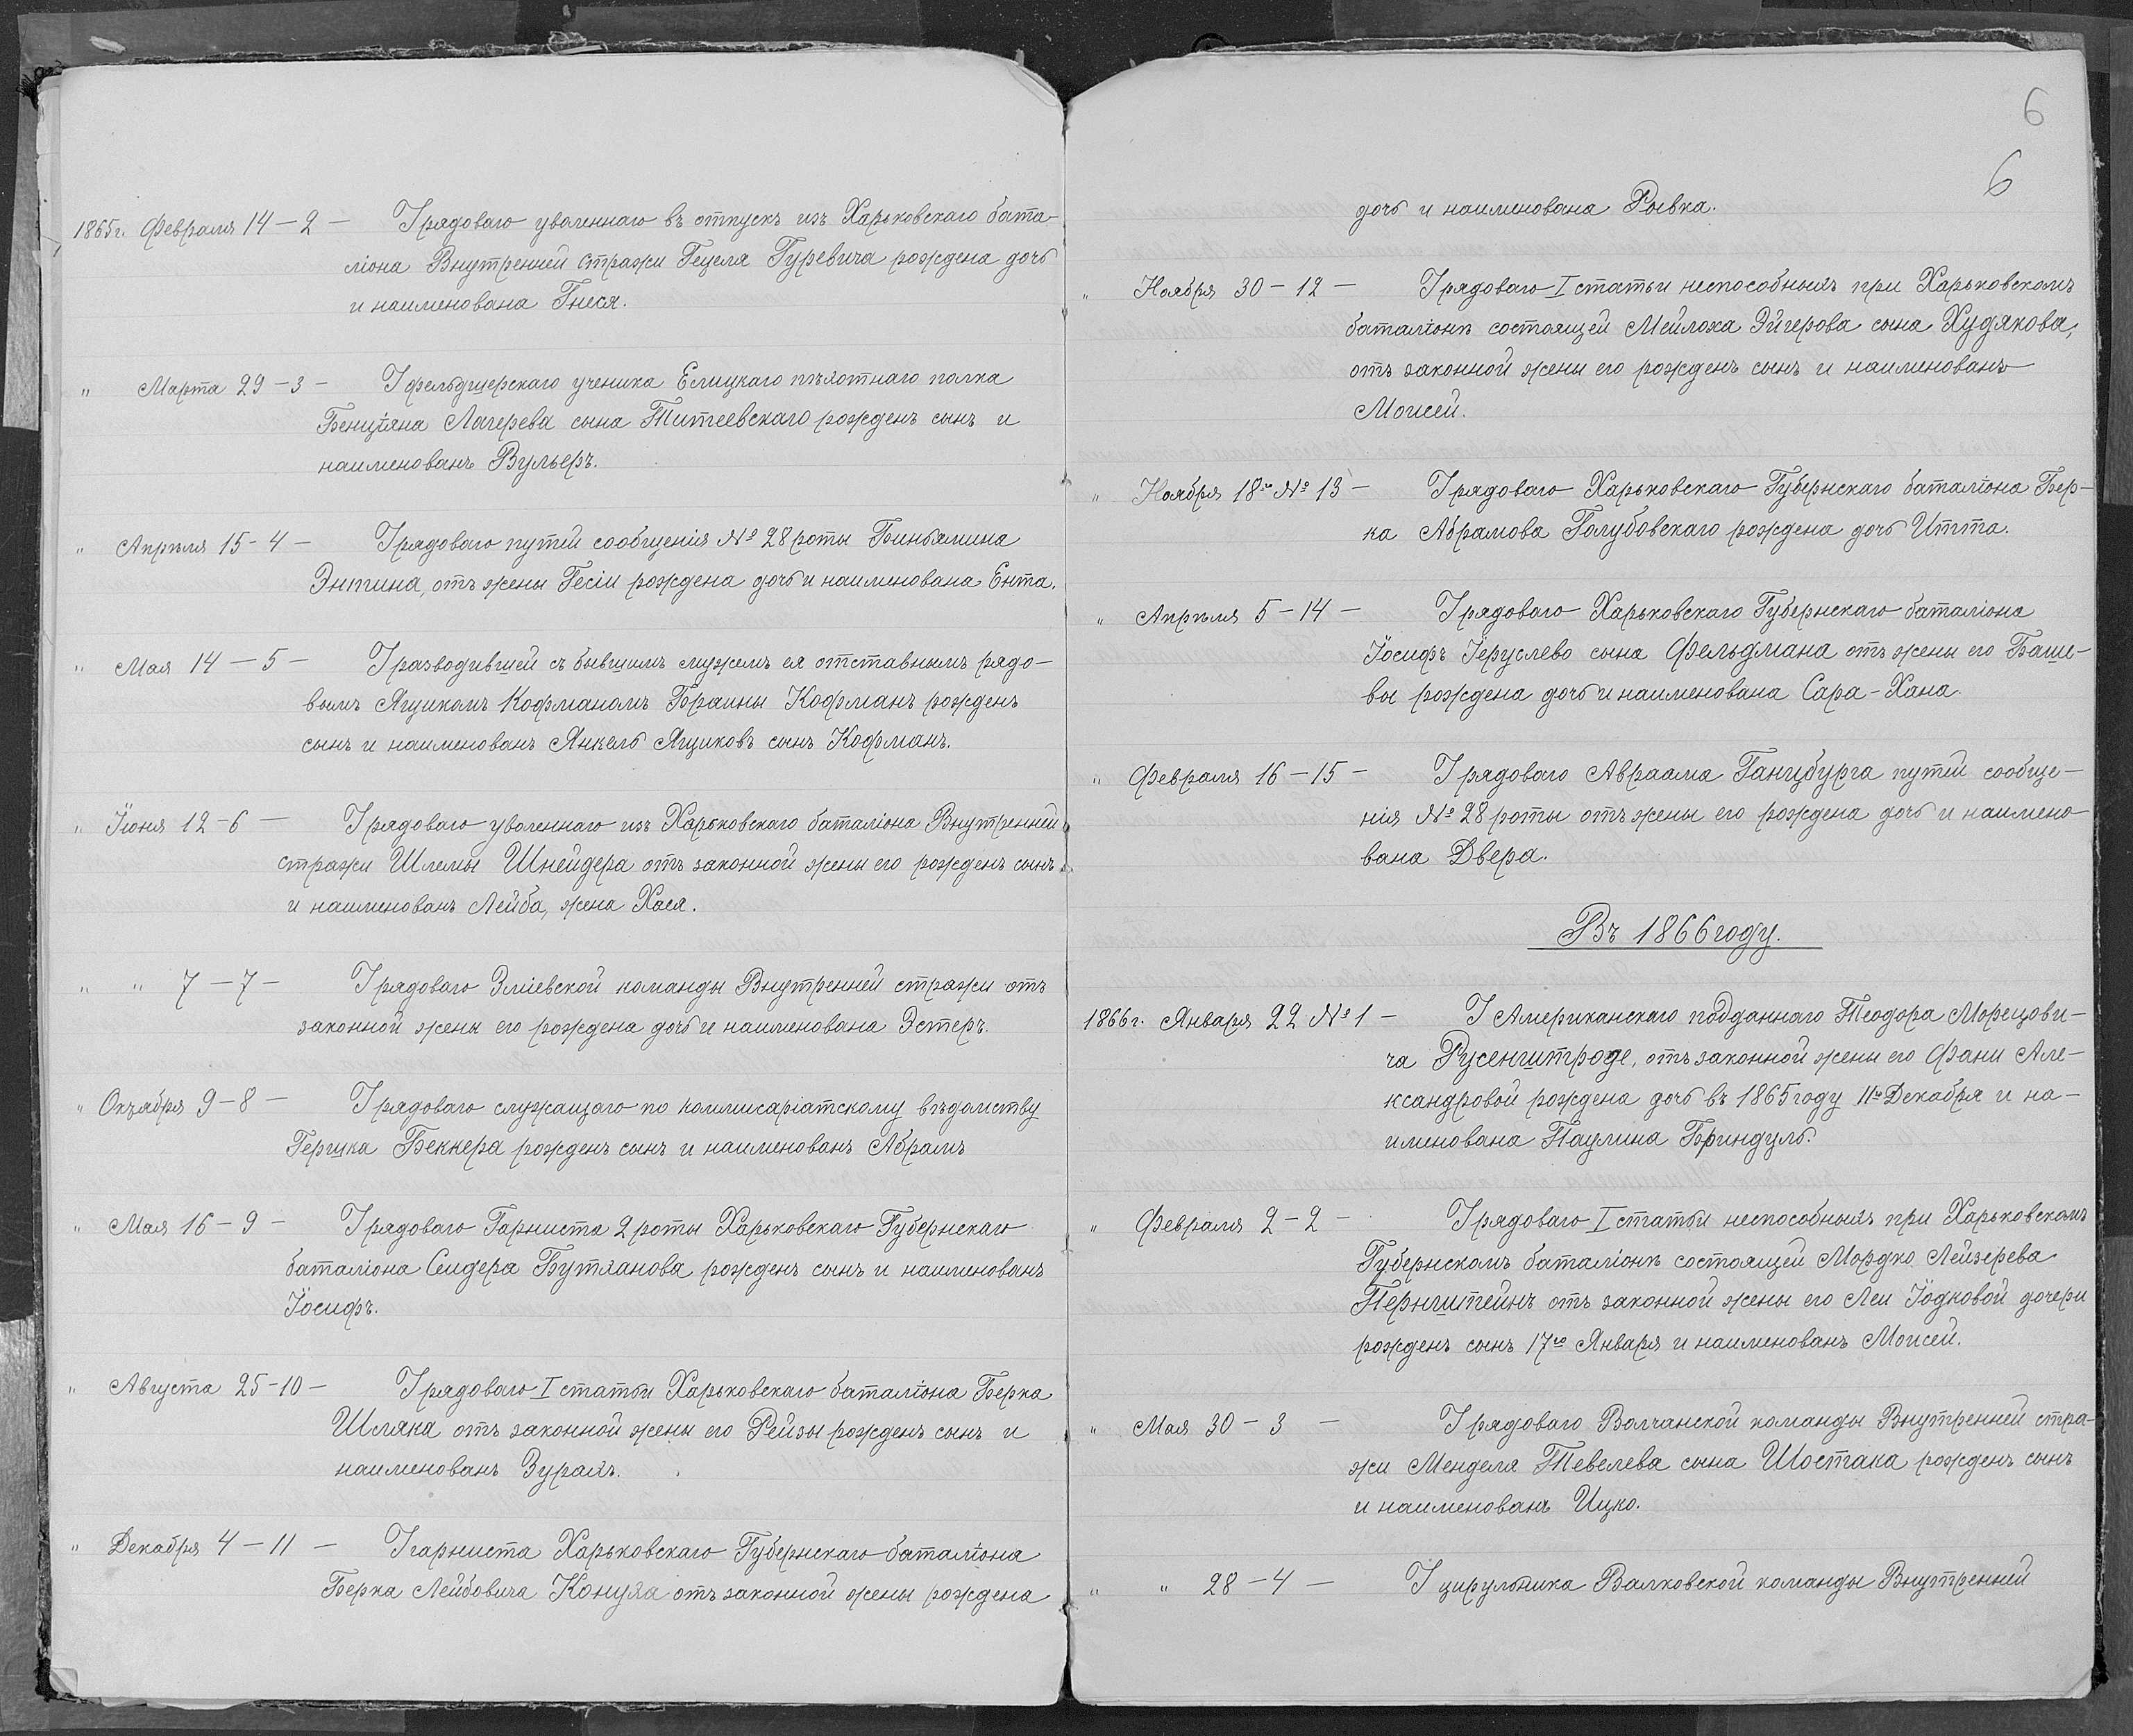 1865г. Февраля 14 – 2 – У рядоваго уволеннаго въ отпускъ изъ Харьковскаго бата-
ліона Внутренней стражи Гецеля Гуревича рождена дочь
и наименована Гнеся.
" Марта 29 – 3 – У фельдшерскаго ученика Елецкаго пѣхотнаго полка
Бенціяна Лагерева сына Титиевскаго рожденъ сынъ и
наименованъ Вульферъ.
" Апрѣля 15 – 4 – У рядоваго путей сообщенія № 28 роты Биньямина
Энтина, отъ жены Гесіи рождена дочь и наименована Ента.
" Мая 14 – 5 – У разводившей съ бывшимъ мужемъ ея отставнымъ рядо-
вымъ Яцикомъ Кофманомъ Браины Кофманъ рожденъ
сынъ и наименованъ Янкель Яциковъ сынъ Кофманъ.
" Іюня 12 – 6 – У рядоваго уволеннаго изъ Харьковскаго баталіона Внутренней
стражи Шлемы Шнейдера отъ законной жены его рожденъ сынъ
и наименованъ Лейба, жена Хася.
" " 7 – 7 – У рядоваго Зміевской команды Внутренней стражи отъ
законной жены его рождена дочь и наименована Эстеръ.
" Октября 9 – 8 – У рядоваго служащаго по коммисаріатскому вѣдомству
Гершка Беккера рожденъ сынъ и наименованъ Абрамъ
" Мая 16 – 9 – У рядоваго Гарниста 2 роты Харьковскаго Губернскаго
баталіона Сидера Бутманова рожденъ сынъ и наименованъ
Іосифъ.
" Августа 25 – 10 – У рядоваго I статьи Харьковскаго баталіона Берка
Шляка отъ законной жены его Рейзы рожденъ сынъ и
наименованъ Зурахъ.
" Декабря 4 – 11 – У гарниста Харьковскаго Губернскаго баталіона
Берка Лейбовича Конуха отъ законной жены рождена
6
6
дочь и наименована Рывка.
" Ноября 30 – 12 – У рядоваго I статьи неспособныхъ при Харьковскомъ
баталіонѣ состоящей Мейлоха Эйгерова сына Худякова,
отъ законной жены его рожденъ сынъ и наименованъ
Моисей.
" Ноября 18го № 13 – У рядоваго Харьковскаго Губернскаго баталіона Бер-
ка Абрамова Голубовскаго рождена дочь Итта.
" Апрѣля 5 – 14 – У рядоваго Харьковскаго Губернскаго баталіона
Іосифъ Іерусlево сына Фельдмана отъ жены его Баше-
вы рождена дочь и наименована Сара-Хана.
" Февраля 16 – 15 – У рядоваго Авраама Ганцбурга путей сообще-
нія № 28 роты отъ жены его рождена дочь и наимено-
вана Двера.
Въ 1866 году.
1866г. Января 22 № 1 – У Американскаго подданнаго Теодора Морецови-
ча Русенштроде, отъ законной жены его Фани Але-
ксандровой рождена дочь въ 1865 году 11го Декабря и на-
именована Паулина Бриндуль.
" Февраля 2 – 2 – У рядоваго I статьи неспособныхъ при Харьковскомъ
Губернскомъ баталіонѣ состоящей Мордко Лейзерева
Пернштейнъ отъ законной жены его Леи Іодковой дочери
рожденъ сынъ 17го Января и наименованъ Моисей.
" Мая 30 – 3 – У рядоваго Волчанской команды Внутренней стра-
жи Менделя Тевелева сына Шостака рожденъ сынъ
и наименованъ Ицко.
" " 28 – 4 – У цирульника Валковской команды Внутренней